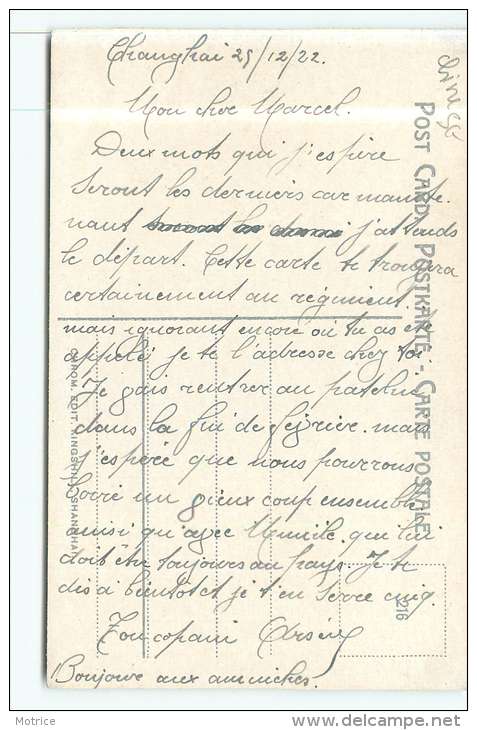 Changhai 25/12/22.
Mon cher Marcel.
Deux mots qui j'espère
seront les derniers car mainte-
nant j'attends
le départ. Cette carte te trouvera
certainement au régiment.
mais ignorant encore où tu as été
appelé je te l'adresse chez toi.
Je vais rentrer au patelin
dans la fin de février. mais
j'espère que nous pourrons
boire un vieux coup ensemble
ainsi qu'avec Emile. qui lui
doit être toujours au pays. Je te
dis à bientôt et je t'en serre cinq.
Ton copain Arsène
Bonjour aux amniches.
POST CARD. POSTKARTE - CARTE POSTALE
CHROM. EDIT. KINGSHILL, SHANGHAI
216
Motrice
delcampe.net